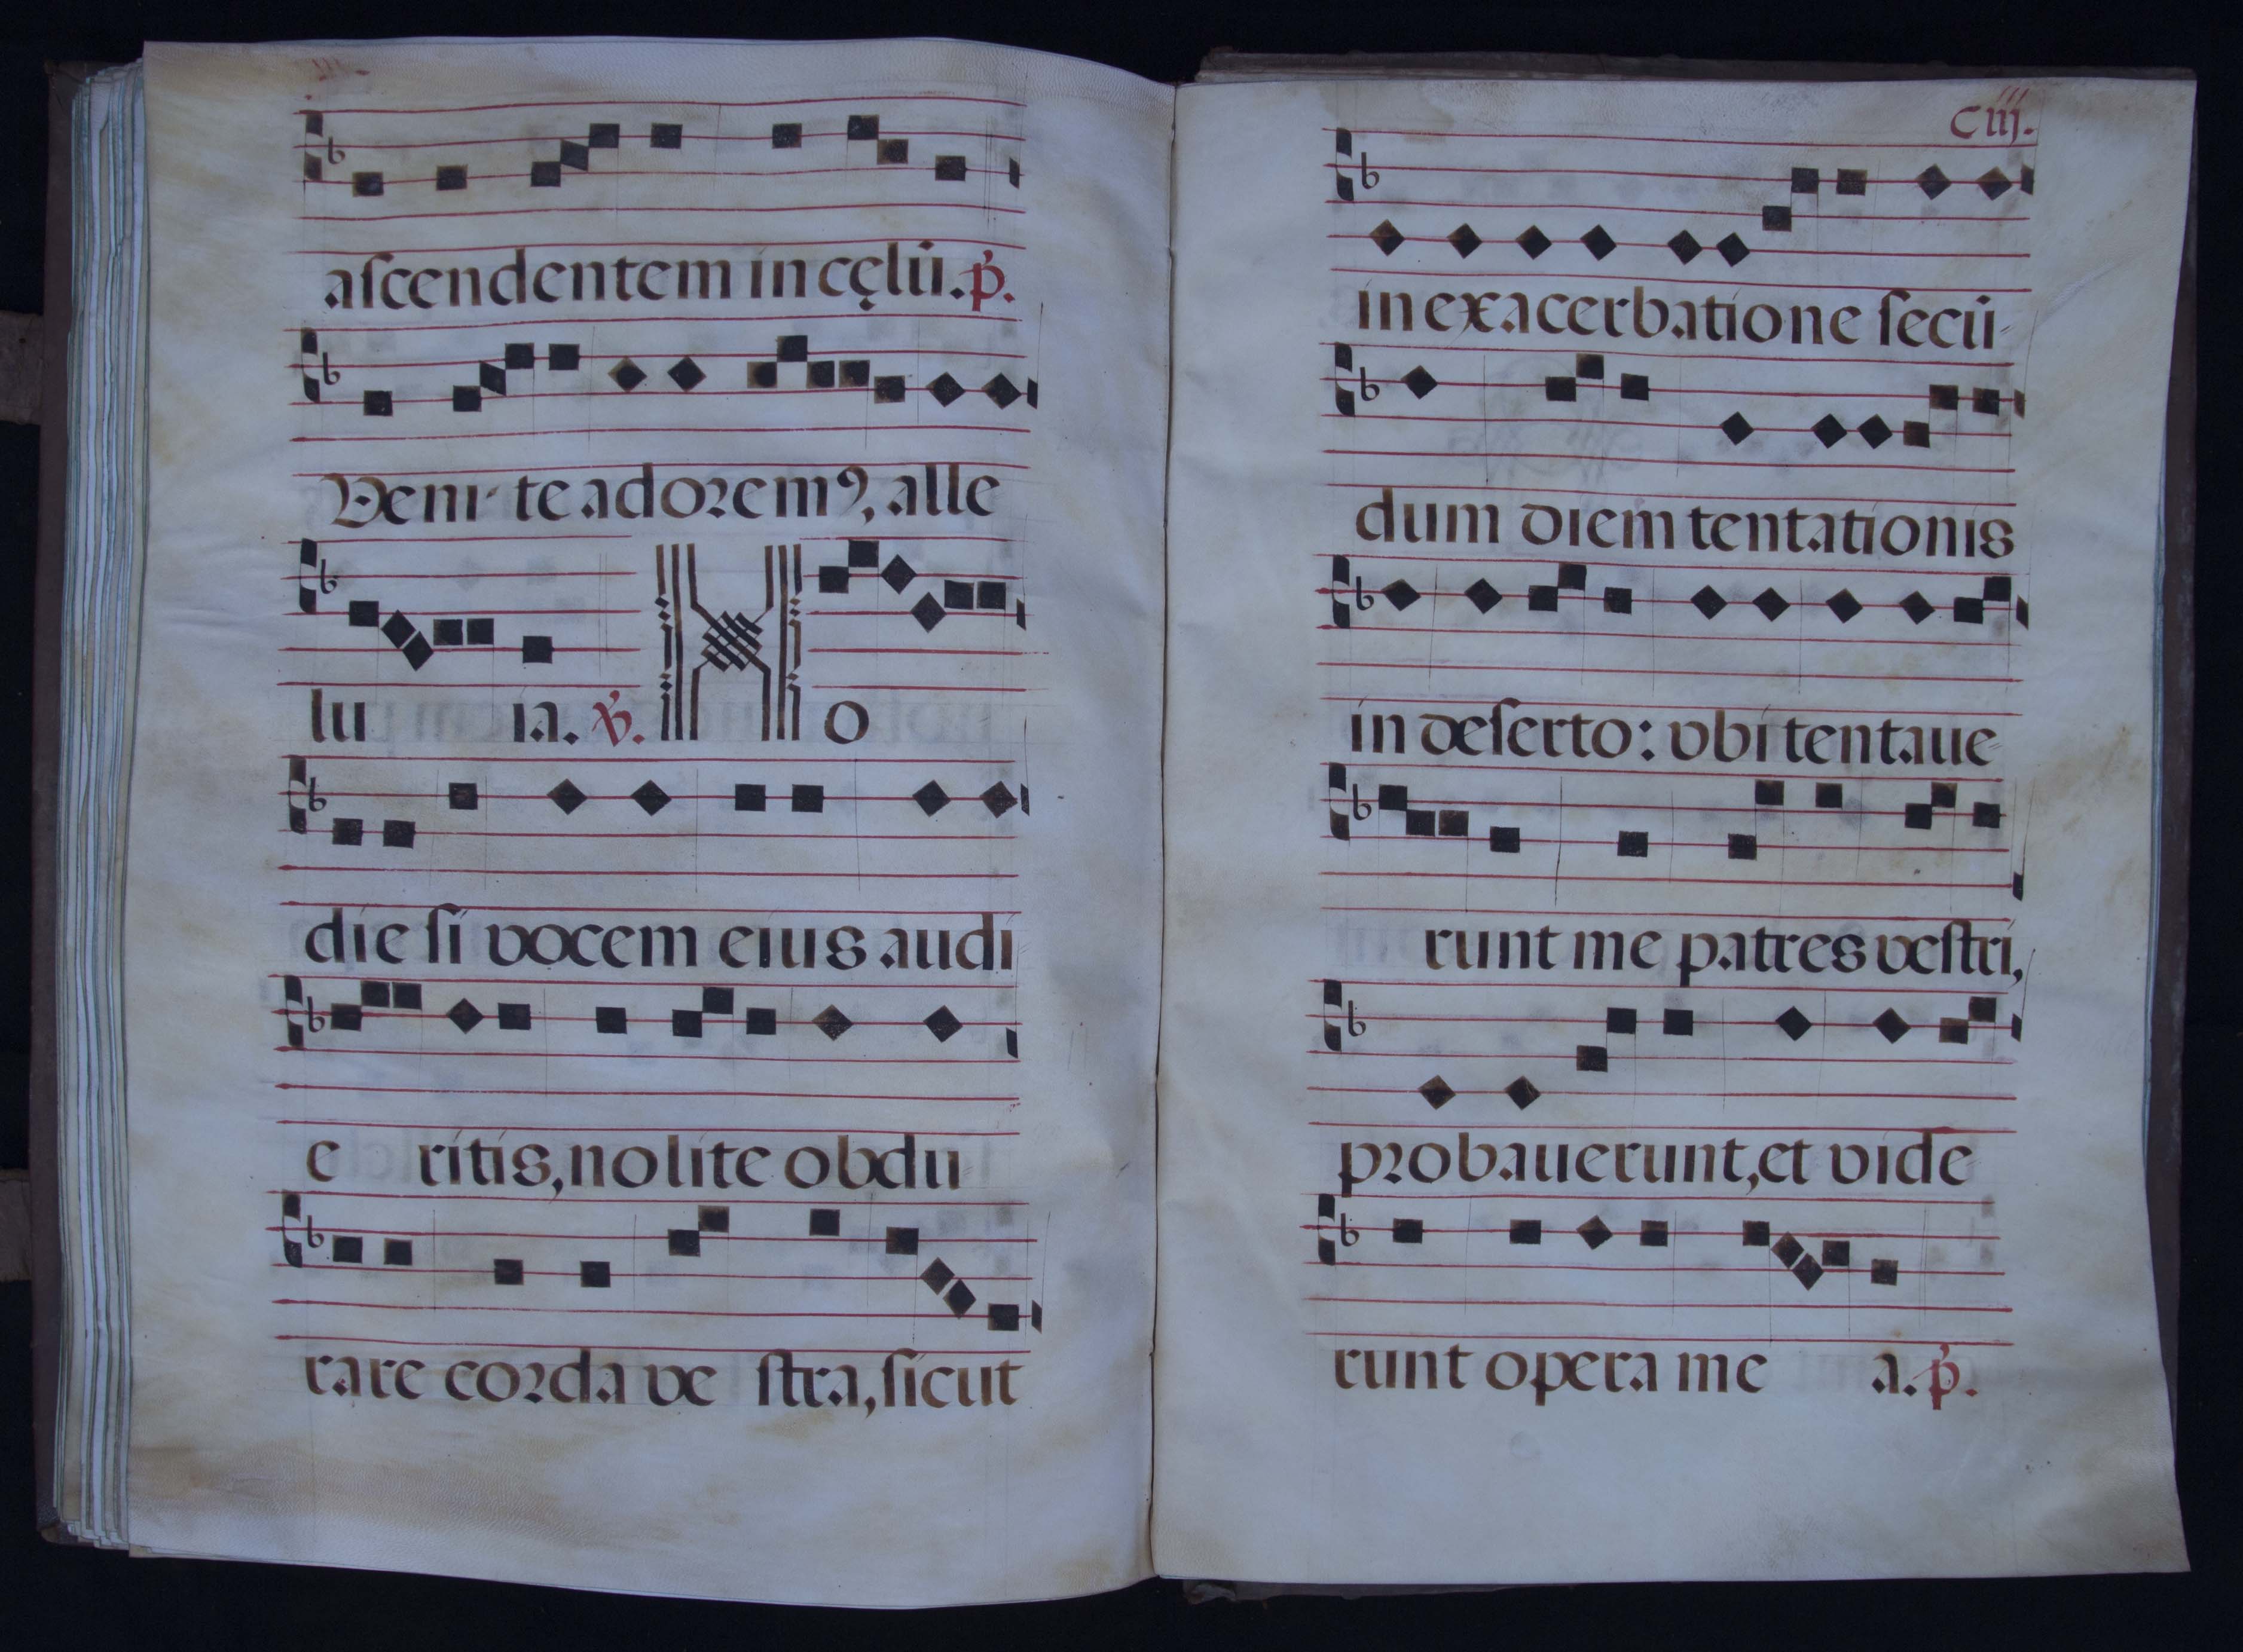 ascendentem in cęlū. p̃.
Ueni te adorem⁹, alle
lu ia. ℣. H o
die si vocem eius audi
e ritis, nolite obdu
rare corda ve stra, sicut
ciij.
in exacerbatione secū
dum diem tentationis
in deserto: vbi tentaue
runt me patres vestri,
probauerunt, et vide
runt opera me a. p̃.